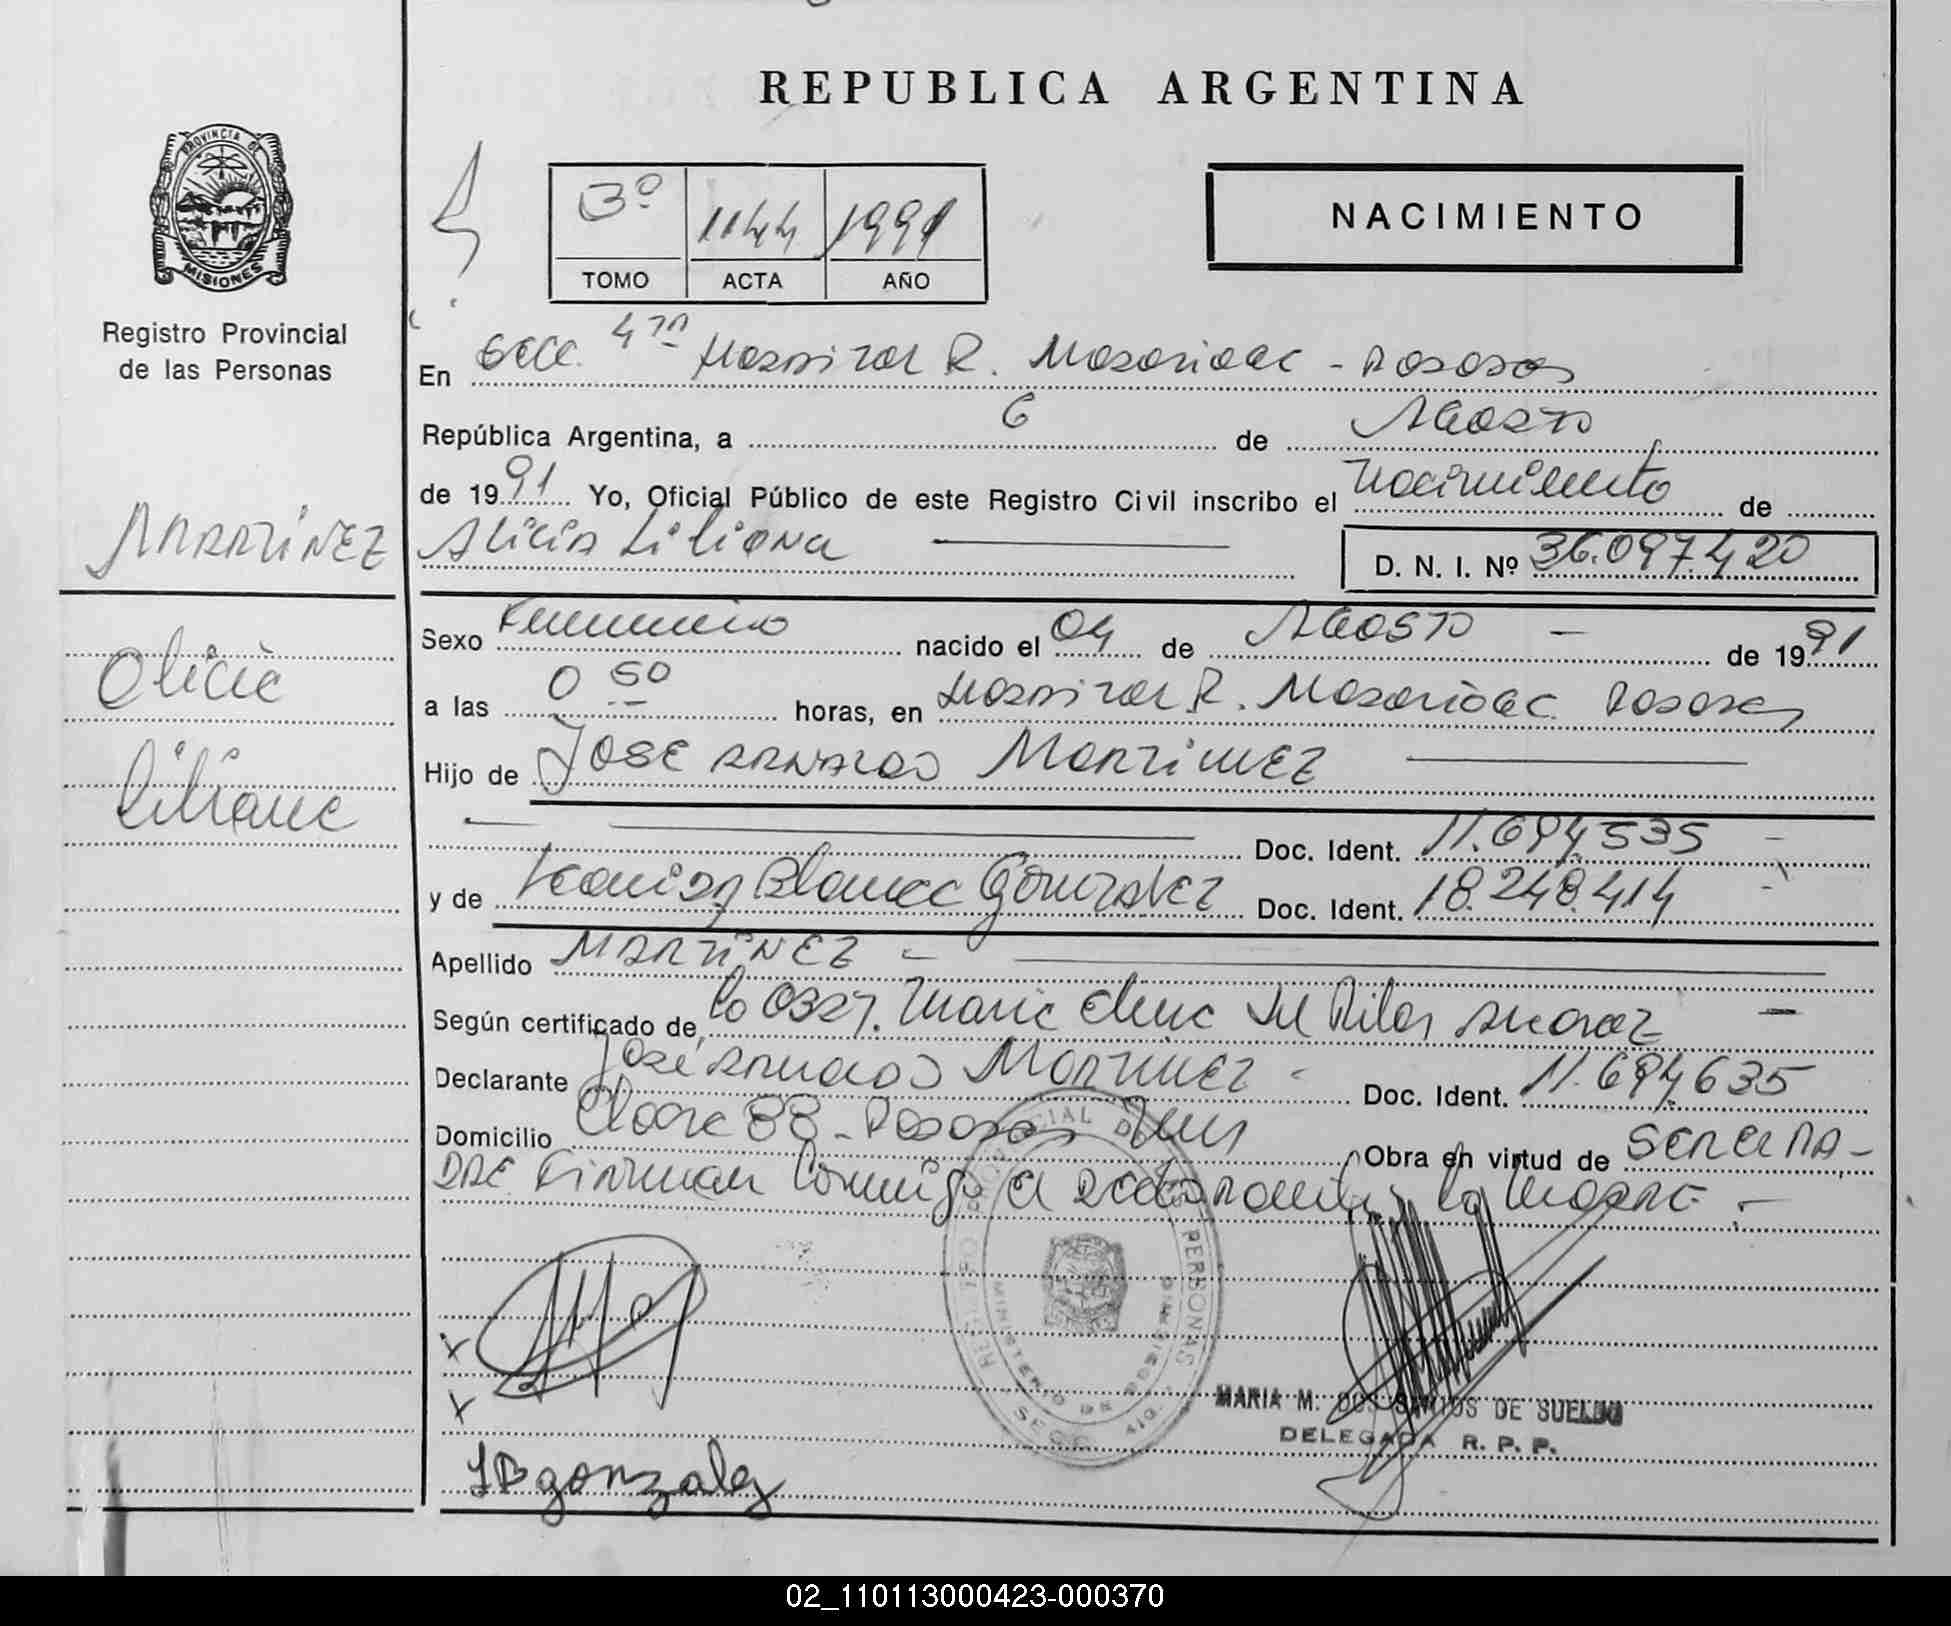 REPUBLICA ARGENTINA
PROVINCIA DE
MISIONES
Registro Provincial
de las Personas
3º 1144 1991
TOMO ACTA AÑO
NACIMIENTO
En Secc. 4ta Hospital R. Madariaga - Posadas
República Argentina, a 6 de Agosto
de 1991 Yo, Oficial Público de este Registro Civil inscribo el nacimiento de
MARTINEZ
Alicia Liliana D. N. I. Nº 36.097.420
Alicia
Liliana
Sexo Femenino nacido el 04 de Agosto - de 1991
a las 0 50 horas, en Hospital R. Madariaga Posadas
Hijo de JOSE ARNALDO MARTINEZ
Doc. Ident. 11.694.535 -
y de Blanca Gonzalez Doc. Ident. 18.248.414 -
Apellido MARTINEZ -
Según certificado de la Obst. Maria Elena del Pilar -
Declarante José Arnaldo Martinez - Doc. Ident. 11.694.635
Domicilio 88 - Posadas Mnes Obra en virtud de ser el PA-
DRE Firman conmigo el y la madre. -
REGISTRO PROVINCIAL DE LAS PERSONAS
MINISTERIO DE GOBIERNO
SECC.
MARIA M. DOS SANTOS DE SUELDO
DELEGADA R. P. P.
x
x
gonzalez
02_110113000423-000370